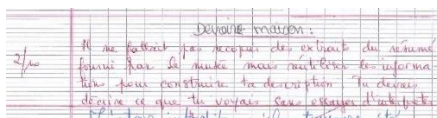 Devoir maison :
2/10
Il ne fallait pas recopier des extraits du résumé
fourni par le musée mais réutiliser les informa-
tions pour construire ta description Tu devais
décrire ce que tu voyais sans essayer d'interpréter